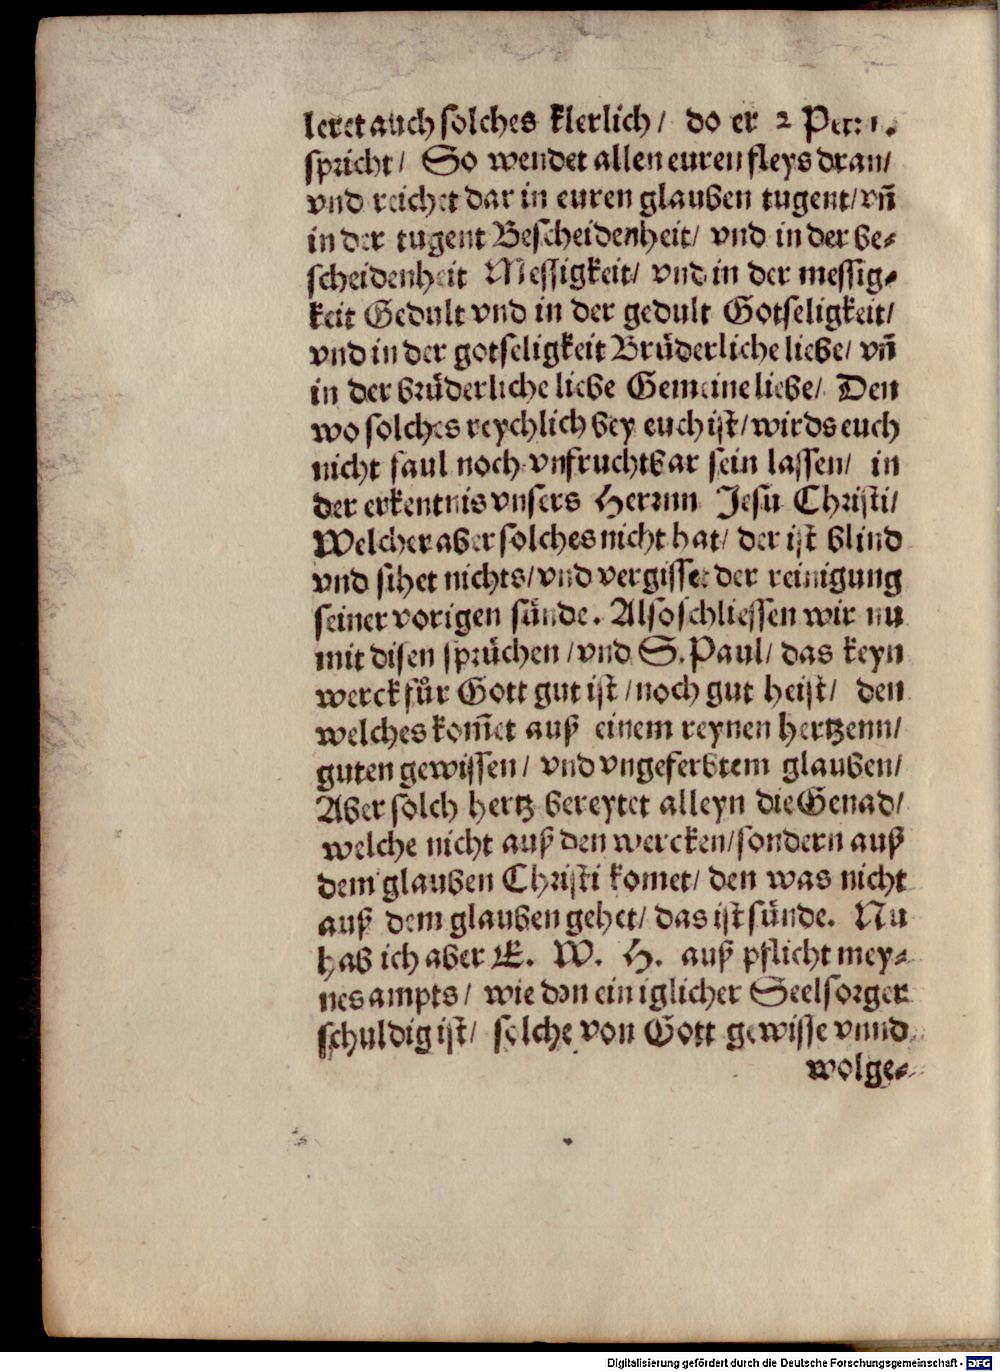 leret auch solches klerlich/ do er 2 Pet: 1.
spricht/ So wendet allen euren fleys dran/
vnd reichet dar in euren glauben tugent/ vñ
in der tugent Bescheidenheit/ vnd in der be-
scheidenheit Messigkeit/ vnd in der messig-
keit Gedult vnd in der gedult Gotseligkeit/
vnd in der gotseligkeit Brüderliche liebe/ vñ
in der brüderliche liebe Gemeine liebe/ Den
wo solches reychlich bey euch ist/ wirds euch
nicht faul noch vnfruchtbar sein lassen/ in
der erkentnis vnsers Herrnn Jesu Christi/
Welcher aber solches nicht hat/ der ist blind
vnd sihet nichts/ vnd vergisset der reinigung
seiner vorigen sünde. Also schliessen wir nu
mit disen sprüchen/ vnd S. Paul/ das keyn
werck für Gott gut ist/ noch gut heist/ den
welches kom̃et auß einem reynen hertzenn/
guten gewissen/ vnd vngeferbtem glauben/
Aber solch hertz bereytet alleyn die Genad/
welche nicht auß den wercken/ sondern auß
dem glauben Christi komet/ den was nicht
auß dem glauben gehet/ das ist sünde. Nu
hab ich aber E. W. H. auß pflicht mey-
nes ampts/ wie dan ein iglicher Seelsorger
schuldig ist/ solche von Gott gewisse vnnd
wolge-
Digitalisierung gefördert durch die Deutsche Forschungsgemeinschaft - DFG